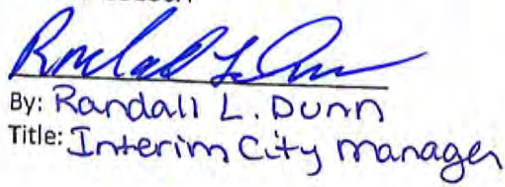 Randall L. Dunn
By: Randall L. Dunn
Title: Interim City Manager